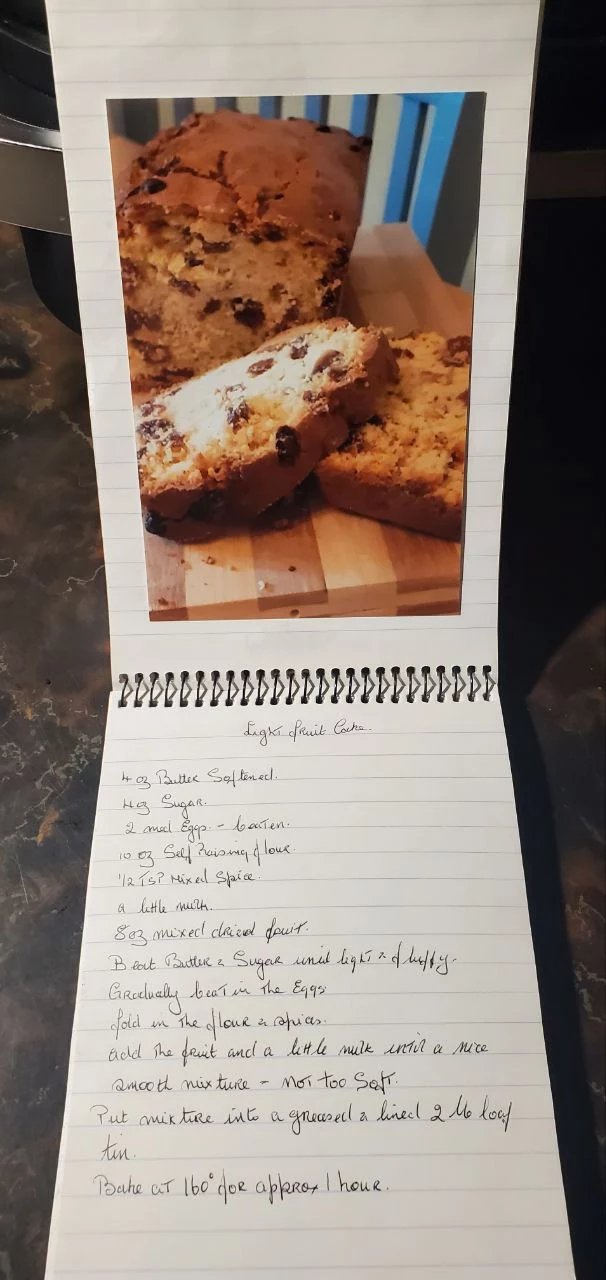 Light fruit Cake.
4 oz Butter Softened.
4 oz Sugar.
2 med Eggs - beaten.
10 oz Self Raising flour.
1/2 TSP Mixed Spice.
a little milk.
8oz mixed dried fruit.
Beat Butter & Sugar until light & fluffy.
Gradually beat in the Eggs
fold in the flour & spices.
add the fruit and a little milk until a nice
smooth mixture - not too soft.
Put mixture into a greased & lined 2 lb loaf
tin.
Bake at 160° for approx 1 hour.